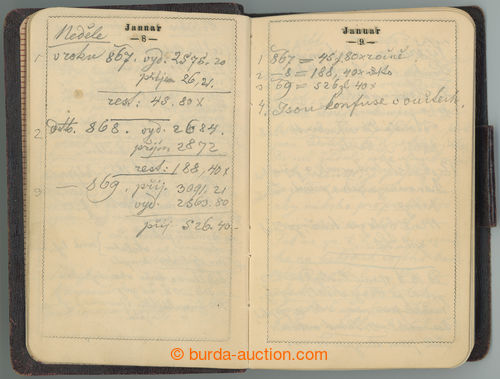 Januar
— 8 —
Neděle
1 v roku 867. vyd. 2575.20
příjem 26,21.
rest: 45,80x
2 dtto. 868. vyd. 2684.
příjm 2872
rest: 188,40x
3 — 869. příj. 3091,21
vyd. 2563.80
příj 526.40
Januar
— 9 —
1 867 = 45,80x ročně
2 — 8 = 188,40x
3 69 = 526 zl 40x
4. Jsou konfuse v
© burda-auction.com